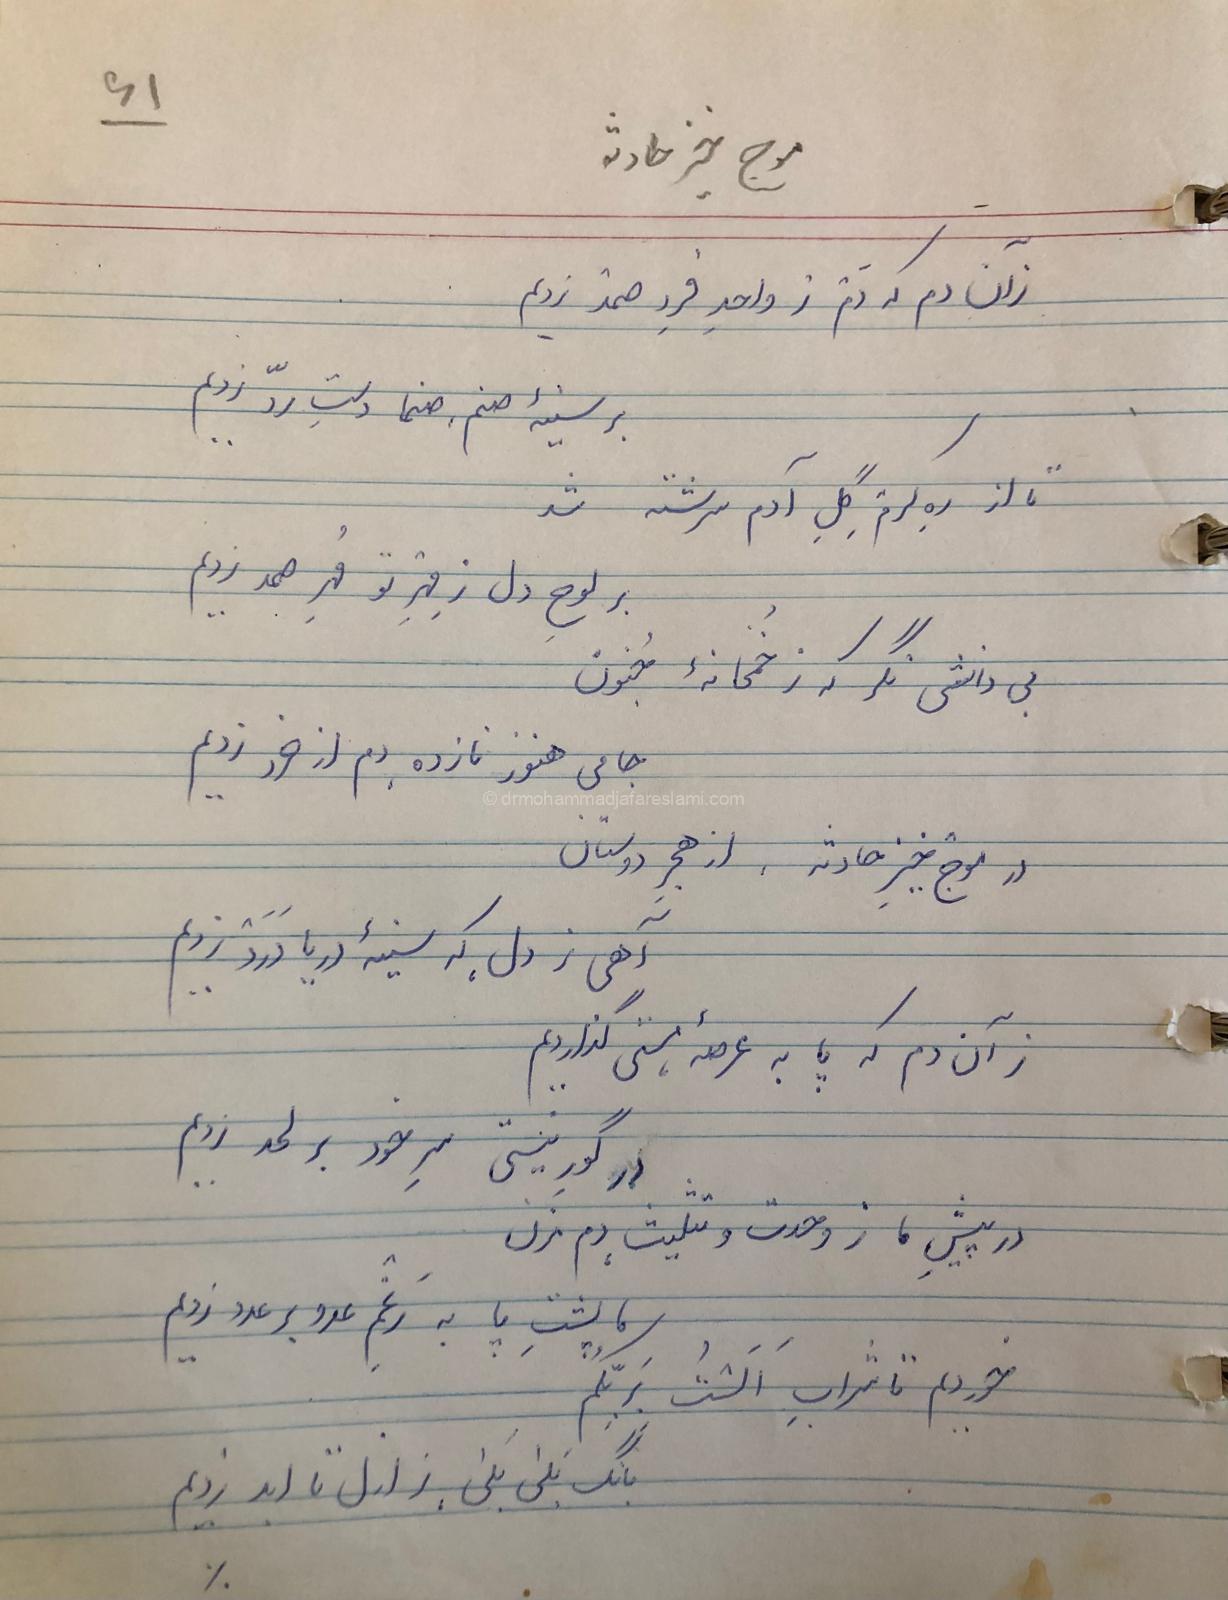 ۶۱
موج خیز حادثه
زآن دم که دَم ز واحدِ فُردِ صمد زدیم
بر سینهٔ صنم، صنما دستِ ردّ زدیم
تا از رهِ کرم گِلِ آدم سرشته شد
بر لوحِ دل ز مِهرِ تو مُهرِ صمد زدیم
بی دانشی نگر که ز خُمخانهٔ جُنون
جامی هنوز نازده، دم از خرد زدیم
در موج خیزِ حادثه، از هجرِ دوستان
آهی ز دل، که سینهٔ دریا دَرَد زدیم
ز آن دم که پا به عرصهٔ هستی گذاردیم
در گورِ نیستی سرِ خود بر لحد زدیم
در پیشِ ما ز وحدت و تثلیث، دم مزن
ما پشتِ پا به رَغمِ عدو بر عدد زدیم
خوردیم تا شرابِ اَلَستُ بَرَبِّکُم
بانگ بَلیٰ بَلیٰ، ز ازل تا ابد زدیم
٪
© drmohammadjafareslami.com